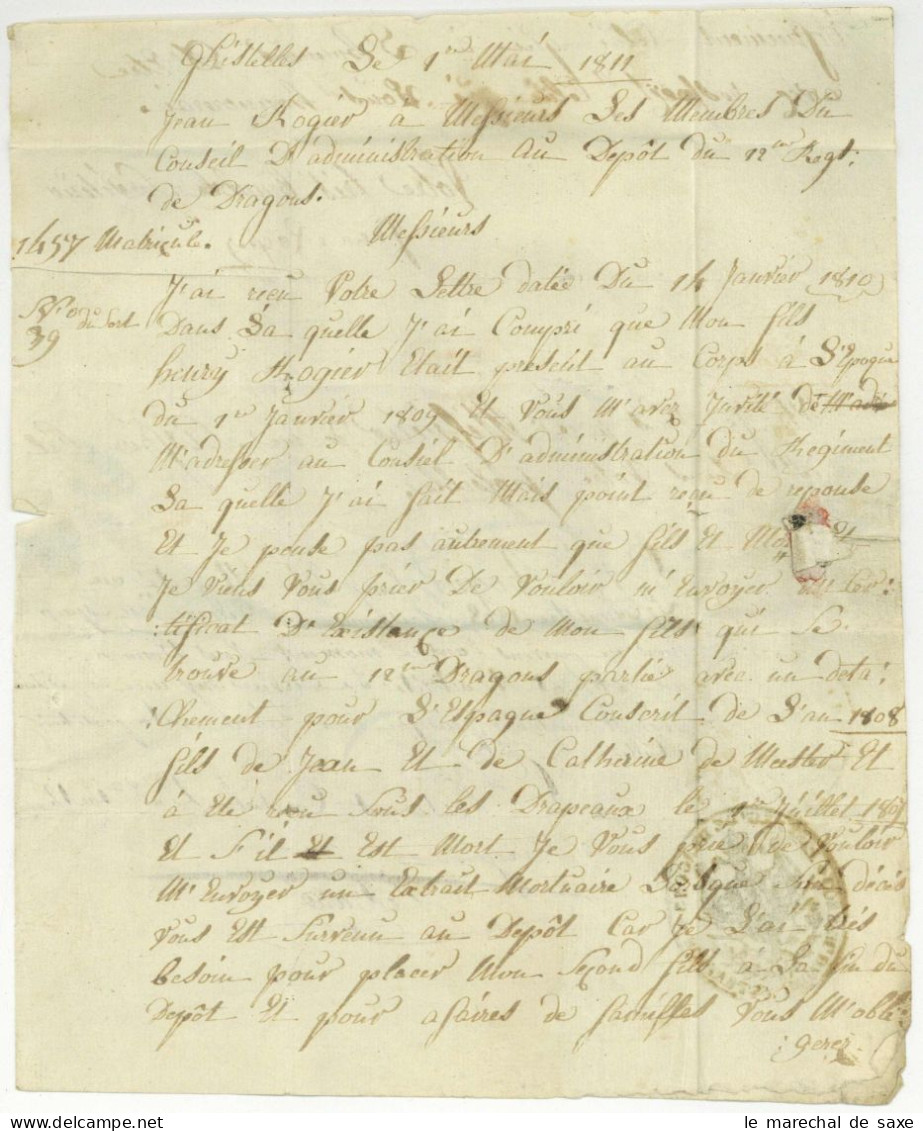 Ghistelles Le 1er Mai 1811
Jean Rogier à Messieurs Les Membres Du
Conseil D'administration Au Depôt du 12me Regt:
de Dragons.
Messieurs
1457 Matricule.
No du sort
39
J'ai recu Votre Lettre datée Du 14 Janvier 1810
Dans La quelle J'ai Compri que Mon fils
henry Rogier Etait présent au Corps à L'Epoque
du 1er Janvier 1809 Et Vous M'avez Jnvité de
M'adresser au Conseil D'administration du Regiment
La quelle J'ai fait Mais point recu de reponse
Et Je pense pas autrement que fils Et Mort Et
Je Viens Vous prier De Vouloir m'Envoyer un Cer:
:tificat D'Existance de Mon fils qui Se
trouve au 12me Dragons partie avec un deta:
:Chement pour L'Espagne Conscrit de L'an 1808
fils de Jean Et de Catherine de Meester Et
à Ete recu Sous les Drapeaux le 1er Juillet 1807
Et S'il Est Mort Je Vous prie De Vouloir
M'Envoyer un Extrait Mortuaire Lorsque Son décès
Vous Est Survenu au Depôt Car Je L'ai très
besoin pour placer Mon Second fils à La fin du
Depôt Et pour afaires de familles Vous M'obli:
:gerez.
le marechal de saxe